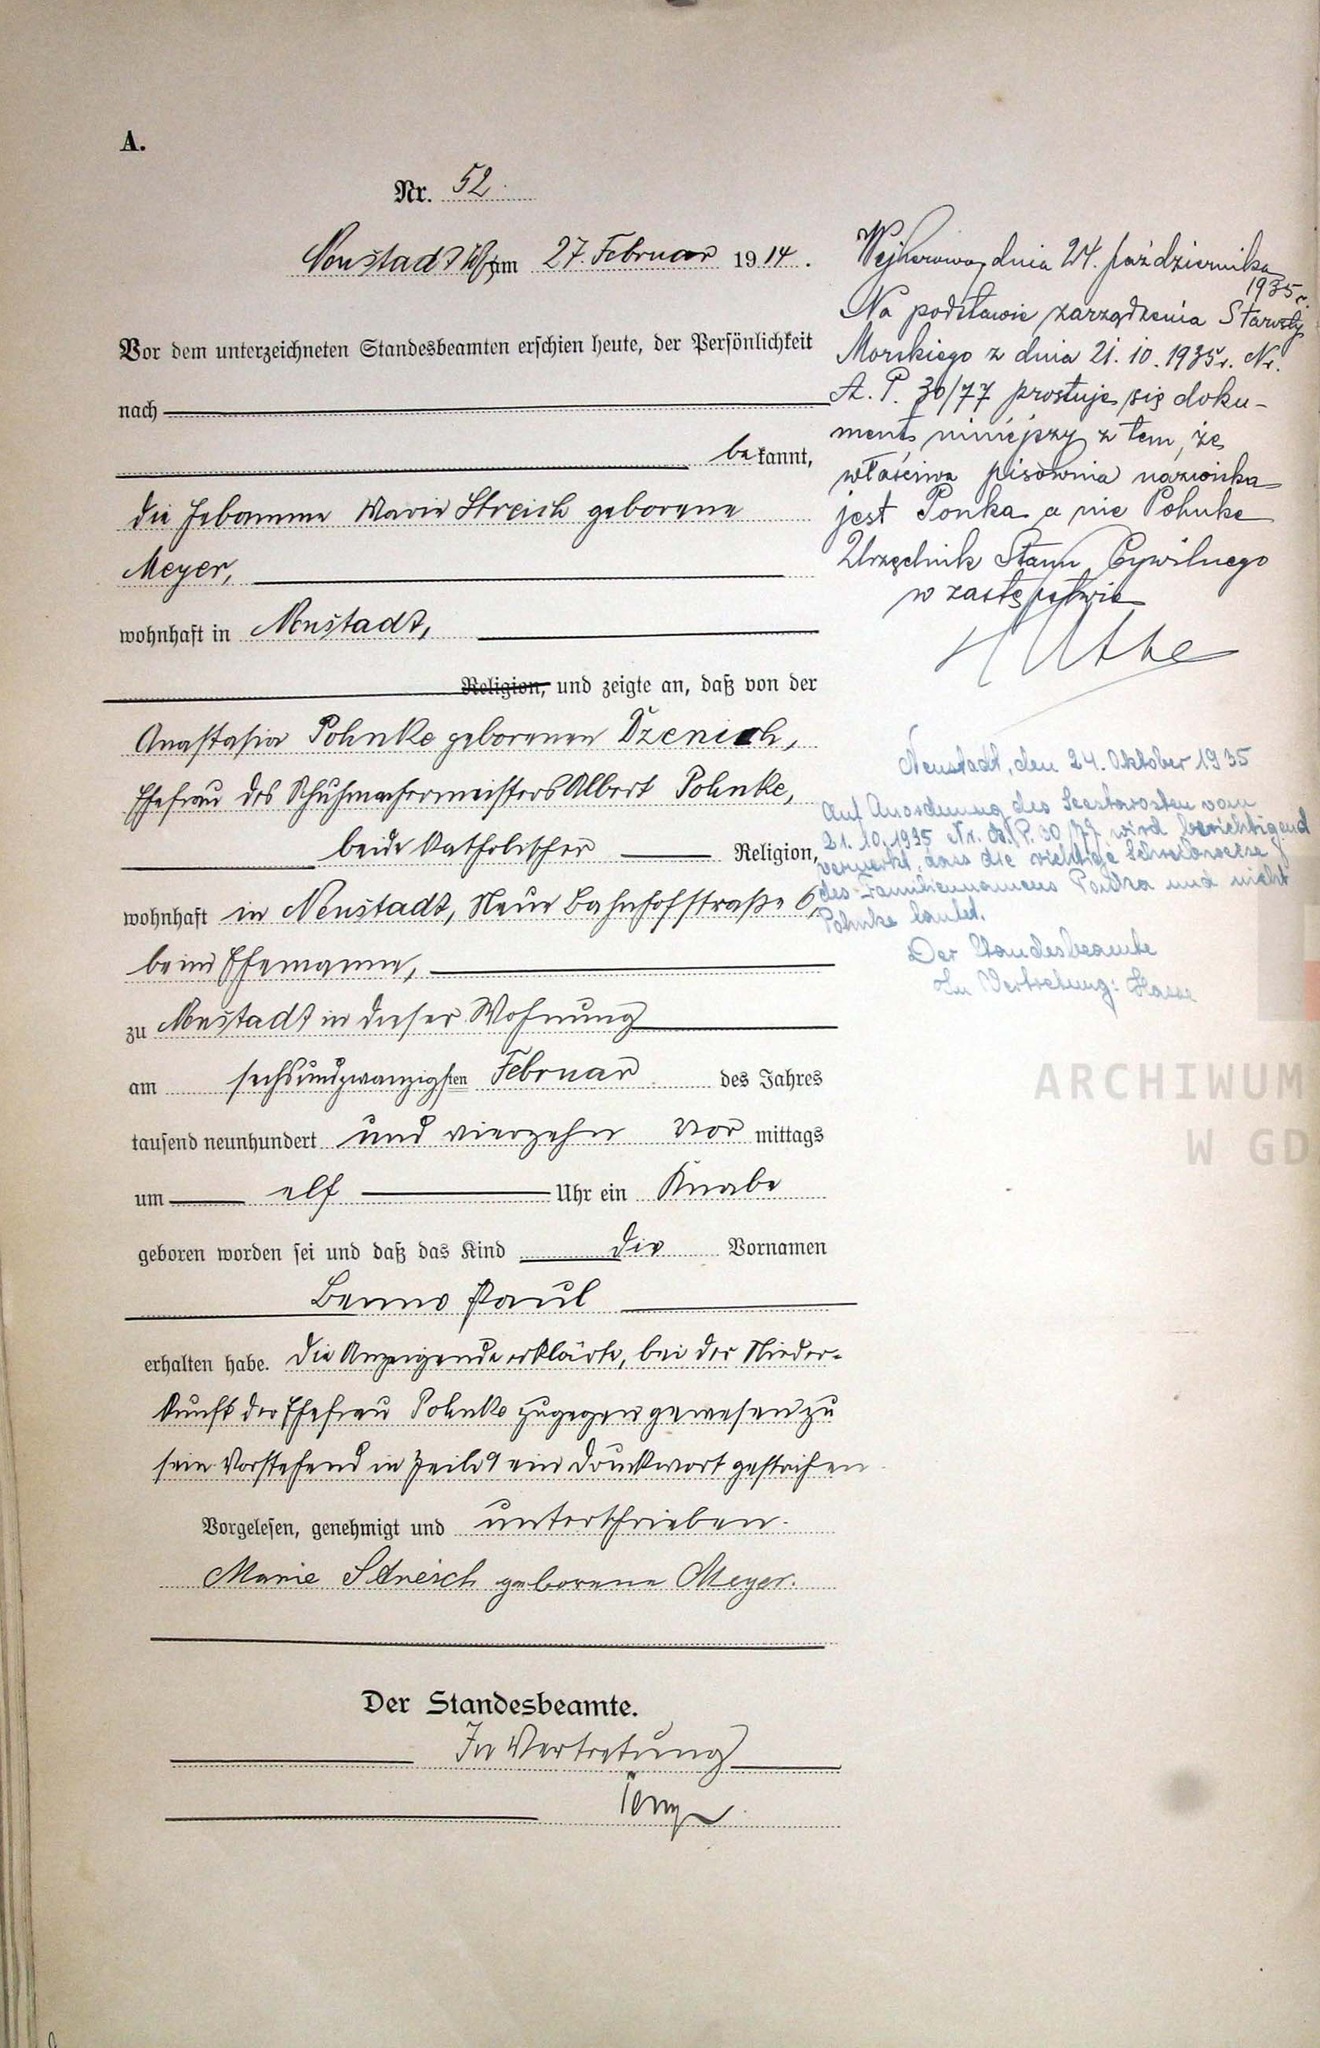 A.
Nr. 52.
Neustadt Wpr am 27. Februar 1914.
Vor dem unterzeichneten Standesbeamten erschien heute, der Persönlichkeit
nach
bekannt,
die Hebamme Marie Streich geborene
Meyer,
wohnhaft in Neustadt,
Religion, und zeigte an, daß von der
Anastasia Pohnke geborenen Dzenisch,
Ehefrau des Schuhmachermeisters Albert Pohnke,
beide katholischer Religion,
wohnhaft in Neustadt, Neue Bahnhofstraße 6,
beim Ehemanne,
zu Neustadt in dieser Wohnung
am sechsundzwanzigsten Februar des Jahres
tausend neunhundert und vierzehn Vor mittags
um elf Uhr ein Knabe
geboren worden sei und daß das Kind die Vornamen
Benno Paul
erhalten habe. Die Anzeigende erklärte, bei der Nieder-
kunft der Ehefrau Pohnke zugegen gewesen zu
sein Vorstehend in Zeile 9 ein Druckwort gestrichen
Vorgelesen, genehmigt und unterschrieben.
Marie Streich geborene Meyer.
Der Standesbeamte.
In Vertretung
Wejherowo, dnia 24. października
1935 r.
Na podstawie zarządzenia Starosty
Morskiego z dnia 21.10.1935 r. Nr.
A.P. 30/77 prostuje się doku-
ment niniejszy z tem, że
właściwa pisownia nazwiska
jest Ponka a nie Pohnke
Urzędnik Stanu Cywilnego
w zastępstwie
Neustadt, den 24. Oktober 1935
Auf Anordnung des Seestarosten vom
21.10.1935 Nr. A.P. 30/77 wird berichtigend
vermerkt, dass die richtige Schreibweise
des Familiennamens Ponka und nicht
Pohnke lautet.
Der Standesbeamte
In Vertretung: Hasse
ARCHIWUM
W GD